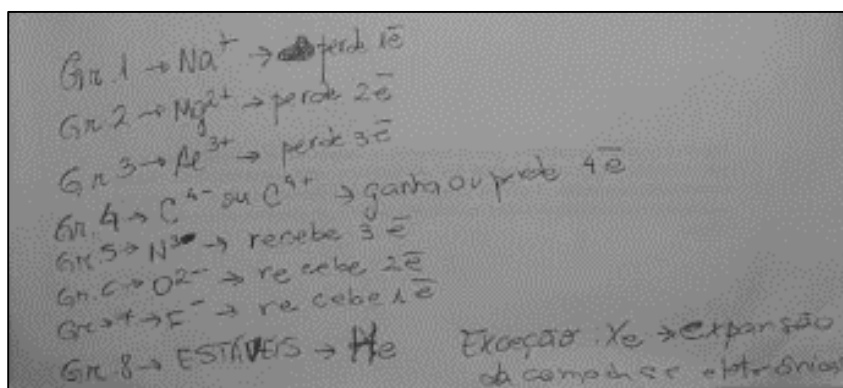 Gr. 1 → Na⁺ → perde 1e̅
Gr. 2 → Mg²⁺ → perde 2e̅
Gr. 3 → Al³⁺ → perde 3e̅
Gr. 4 → C⁴⁻ ou C⁴⁺ → ganha ou perde 4e̅
Gr. 5 → N³⁻ → recebe 3e̅
Gr. 6 → O²⁻ → recebe 2e̅
Gr. 7 → F⁻ → recebe 1e̅
Gr. 8 → ESTÁVEIS → He
Exceção: Xe → expansão
da camada eletrônica